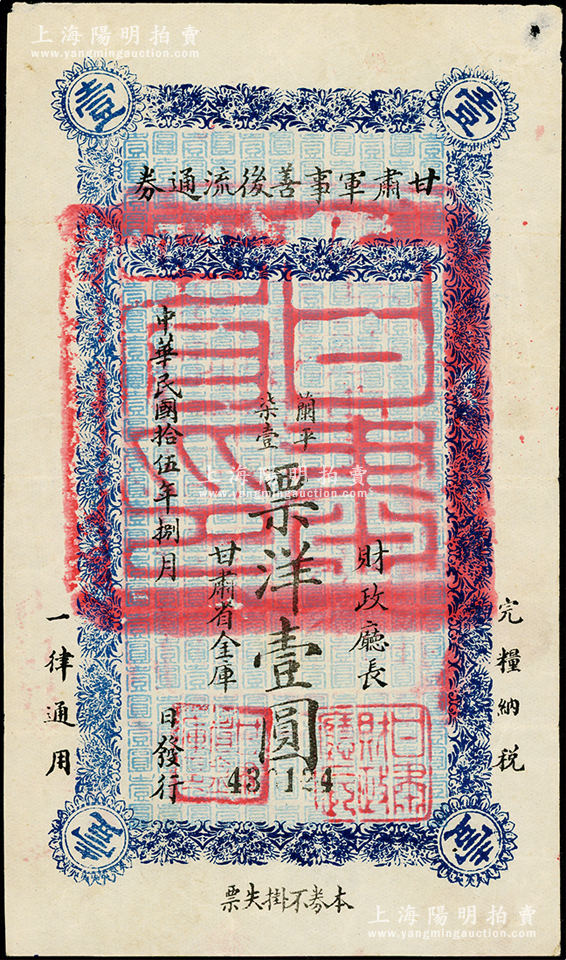 上海陽明拍賣
www.yangmingauction.com
壹
壹
甘肅軍事善後流通券
完糧納税
財政廳長
蘭平
柒壹
票洋壹圓
甘肅省金庫
中華民國拾伍年捌月
日發行
一律通用
上海陽明拍賣
www.yangmingauction.com
壹
壹
本券不掛失票
上海陽明拍賣
www.yangmingauction.com